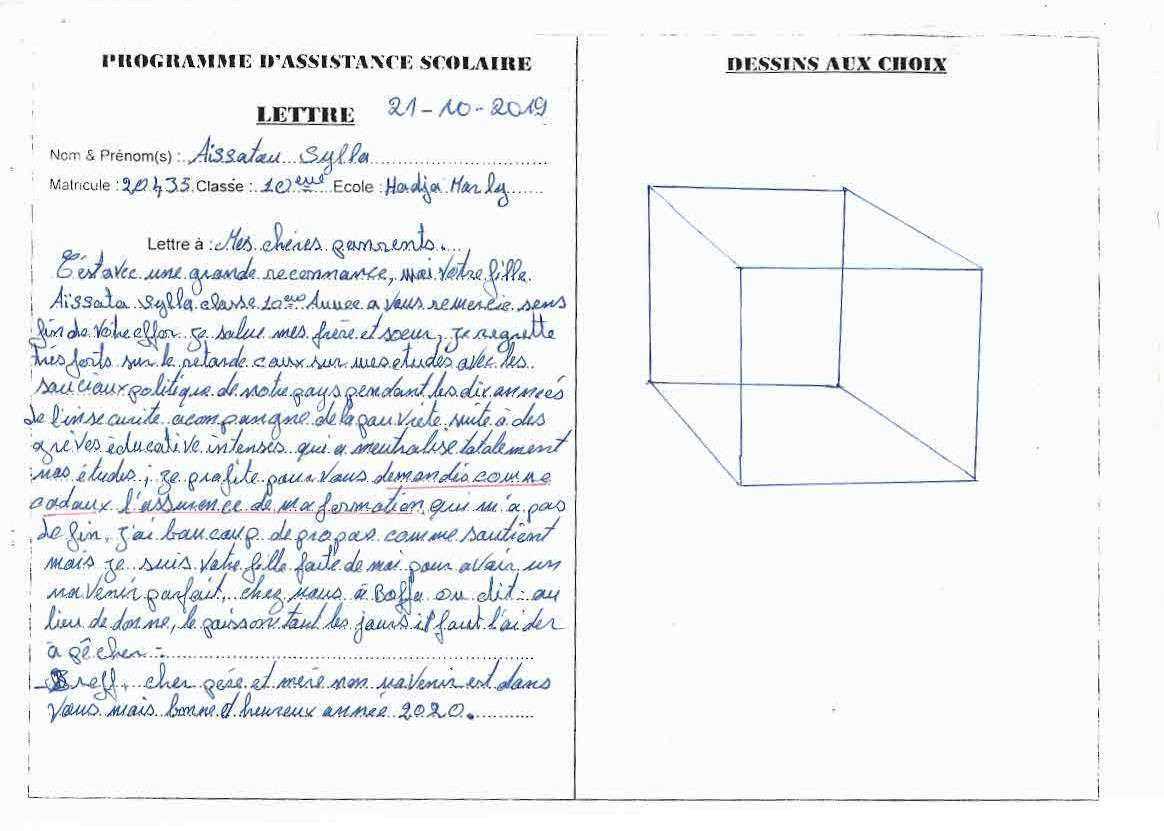 PROGRAMME D'ASSISTANCE SCOLAIRE
LETTRE 21-10-2019
Nom & Prénom(s) : Aissatou Sylla
Matricule : 20435 Classe : 10ème Ecole : Hadja Marly
Lettre à : Mes chères parrents.
C'est avec une grande reconnance, moi votre fille
Aissata Sylla classe 10ème Annee a vous remercie sens
fin de votre effor je salue mes frère et soeur, je regrette
très forts sur le retarde caux sur mes etudes avec les
sauciaux politique de notre pays pendant les dix années
de l'insecurite acompangne de la pauvriete suite à des
grèves éducative intenses qui a neutralise totalement
nos études ; je profite pour vous demandis comme
cadaux l'assurence de ma formation qui n'a pas
de fin, j'ai baucoup de propos comme soutient
mais je suis votre fille faite de moi pour avoir un
navenir parfait, chez nous à Boffa on dit : au
lieu de donne, le poisson tout les jours il faut l'aider
à pêcher -
- Breff, cher pére et mère mon navenir est dans
vous mais bonne et heureux année 2020.
DESSINS AUX CHOIX